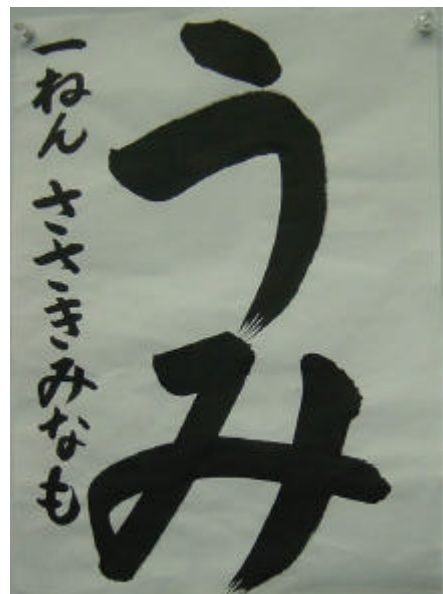 うみ
一ねん ささきみなも